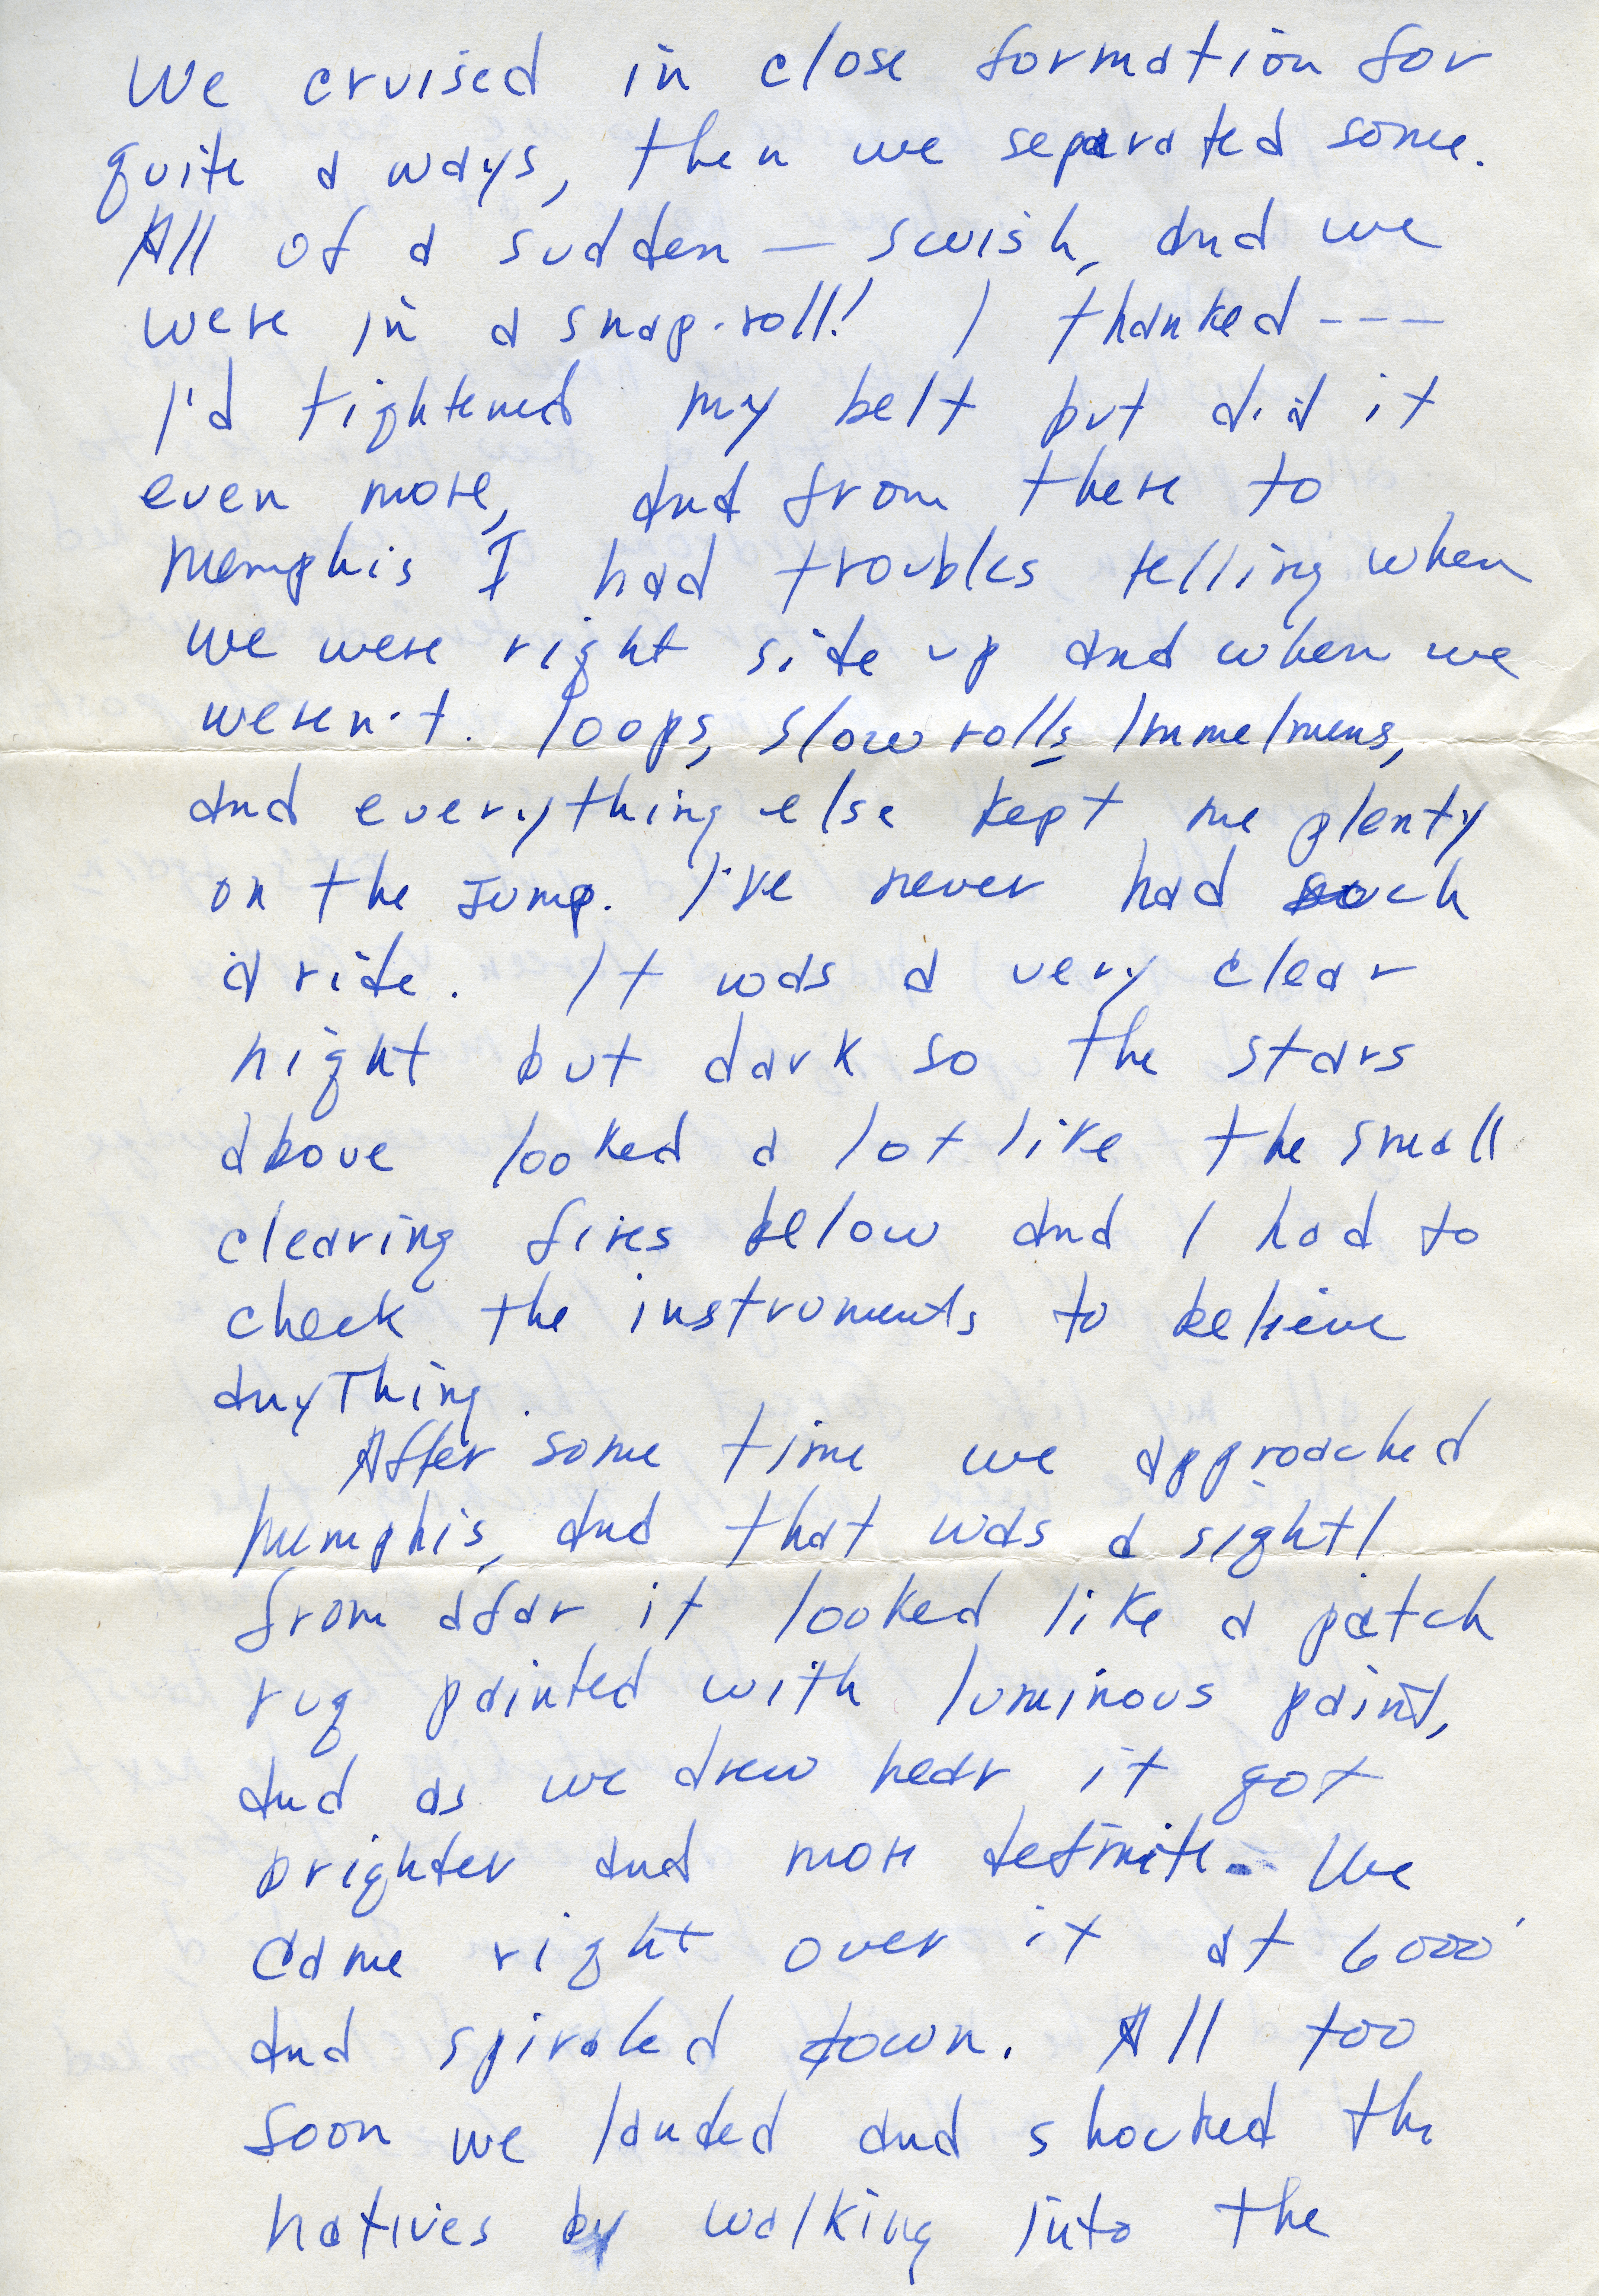 We cruised in close formation for
quite a ways, then we separated some.
All of a sudden — swish, and we
were in a snap-roll! I thanked ---
I'd tightened my belt but did it
even more, and from there to
Memphis I had troubles telling when
we were right side up and when we
weren't. loops, slow rolls Immelmens,
and everything else kept me plenty
on the jump. I've never had such
a ride. It was a very clear
night but dark so the stars
above looked a lot like the small
clearing fires below and I had to
check the instruments to believe
anything.
After some time we approached
Memphis, and that was a sight!
from afar it looked like a patch
rug painted with luminous paint,
and as we drew near it got
brighter and more definite - We
came right over it at 6000'
and spiraled down. All too
soon we landed and shocked the
natives by walking into the